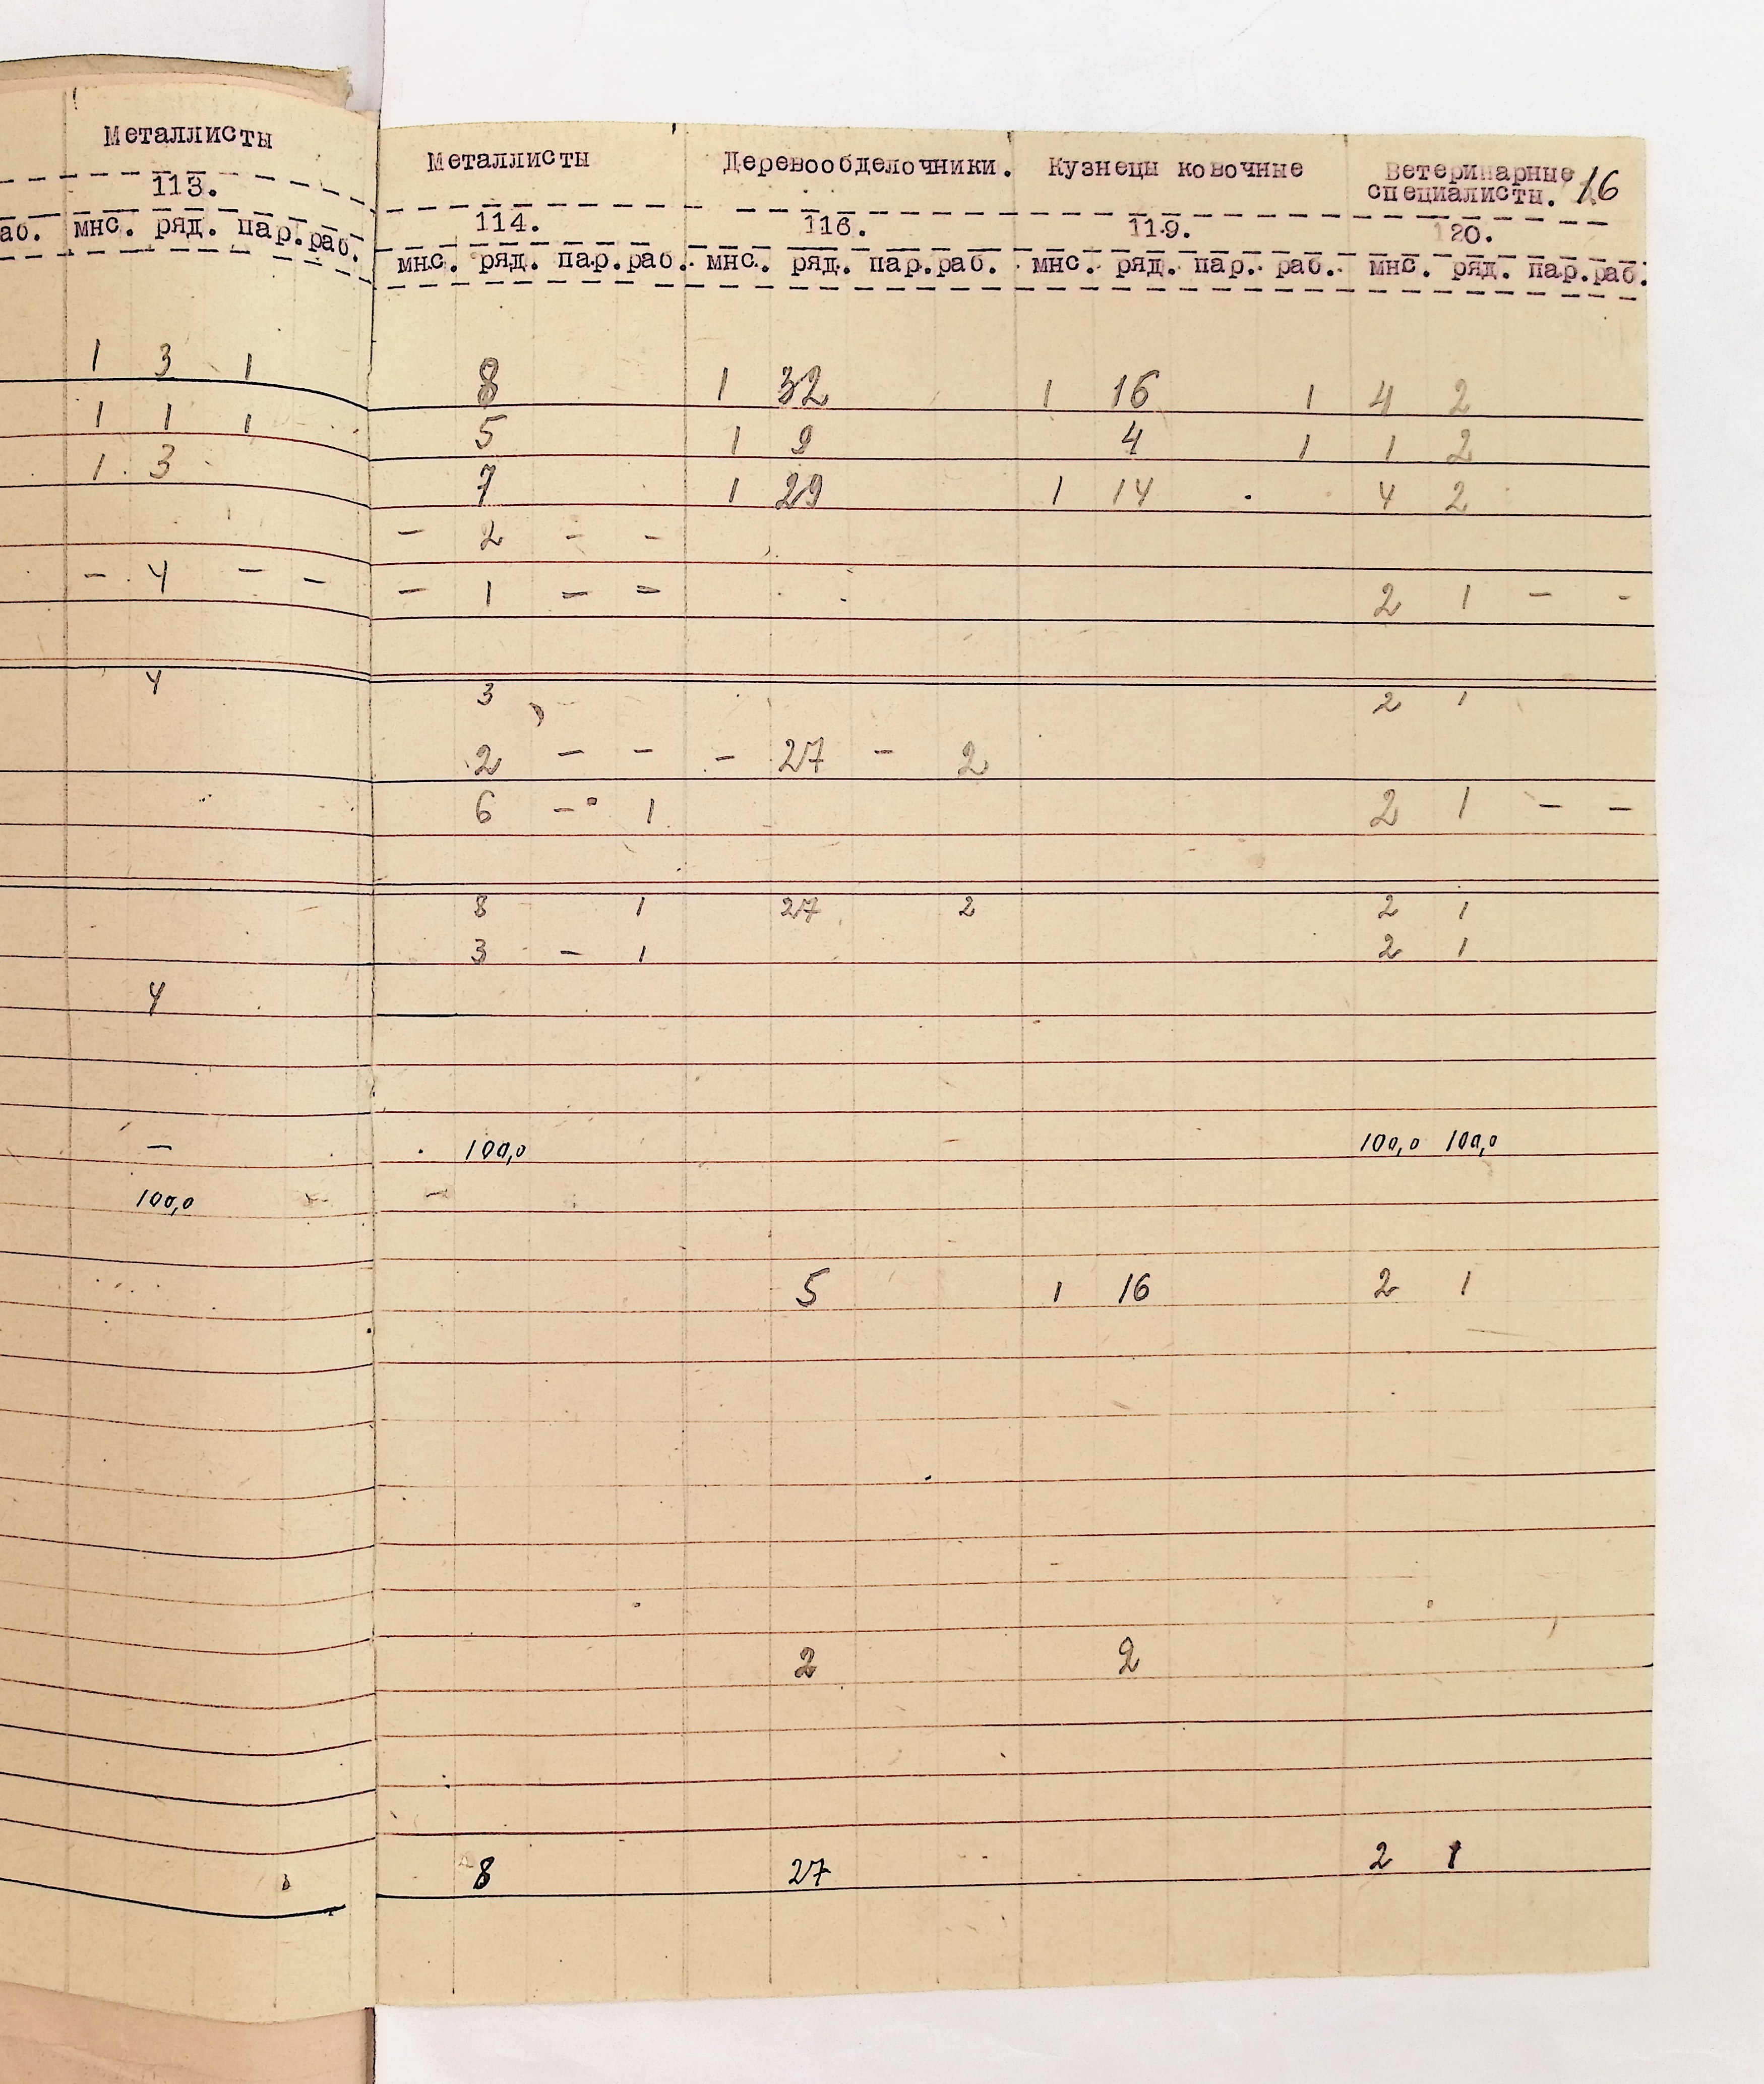 Металлисты Металлисты Деревообделочники. Кузнецы ковочные Ветеринарные специалисты. 16
113. 114. 116. 119. 120.
аб. мнс. ряд. пар. раб. мнс. ряд. пар. раб. мнс. ряд. пар. раб. мнс. ряд. пар. раб. мнс. ряд. пар. раб.
1 3 1 8 1 32 1 16 1 4 2
1 1 1 5 1 9 4 1 1 2
1 3 7 1 29 1 14 4 2
- 2 - -
- 4 - - - 1 - - 2 1 - -
4 3 2 1
2 - - - 27 - 2
6 - 1 2 1 - -
8 1 27 2 2 1
3 - 1 2 1
4
- 100,0 100,0 100,0
100,0 -
5 1 16 2 1
2 2
8 27 2 1